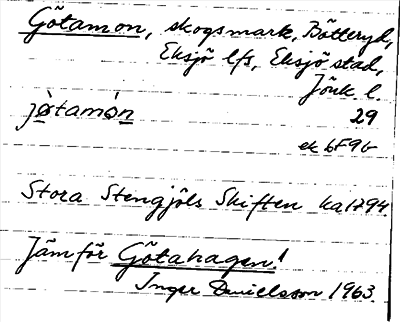 Götamon, skogsmark, Bötteryd,
Eksjö lfs, Eksjö stad,
Jönk l.
jø̀tamón 29
ek 6F9b
Stora Stengjöls Skiften ka 1794
Jämför Götahagen!
Inger Danielsson 1963.